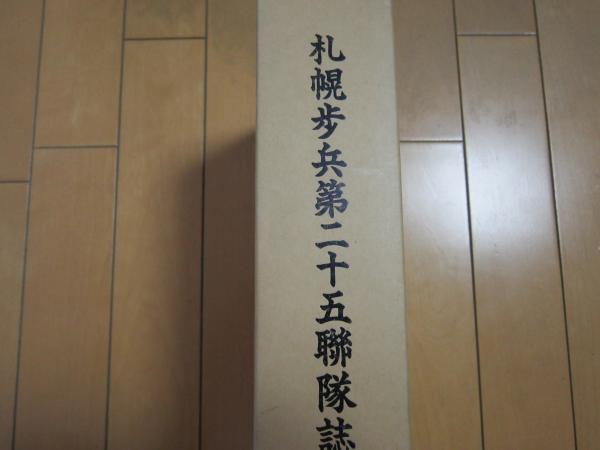 札幌歩兵第二十五聯隊誌